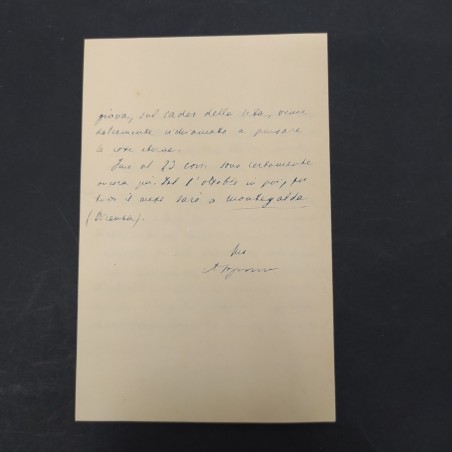 giova, sul cader della vita, venir
dolcemente richiamato a pensare
le cose eterne.
Fino al 23 corr. sono certamente
ancora qui. Dal 1° ottobre in poi, per
tutto il mese sarò a Montegalda
(Vicenza).
Suo